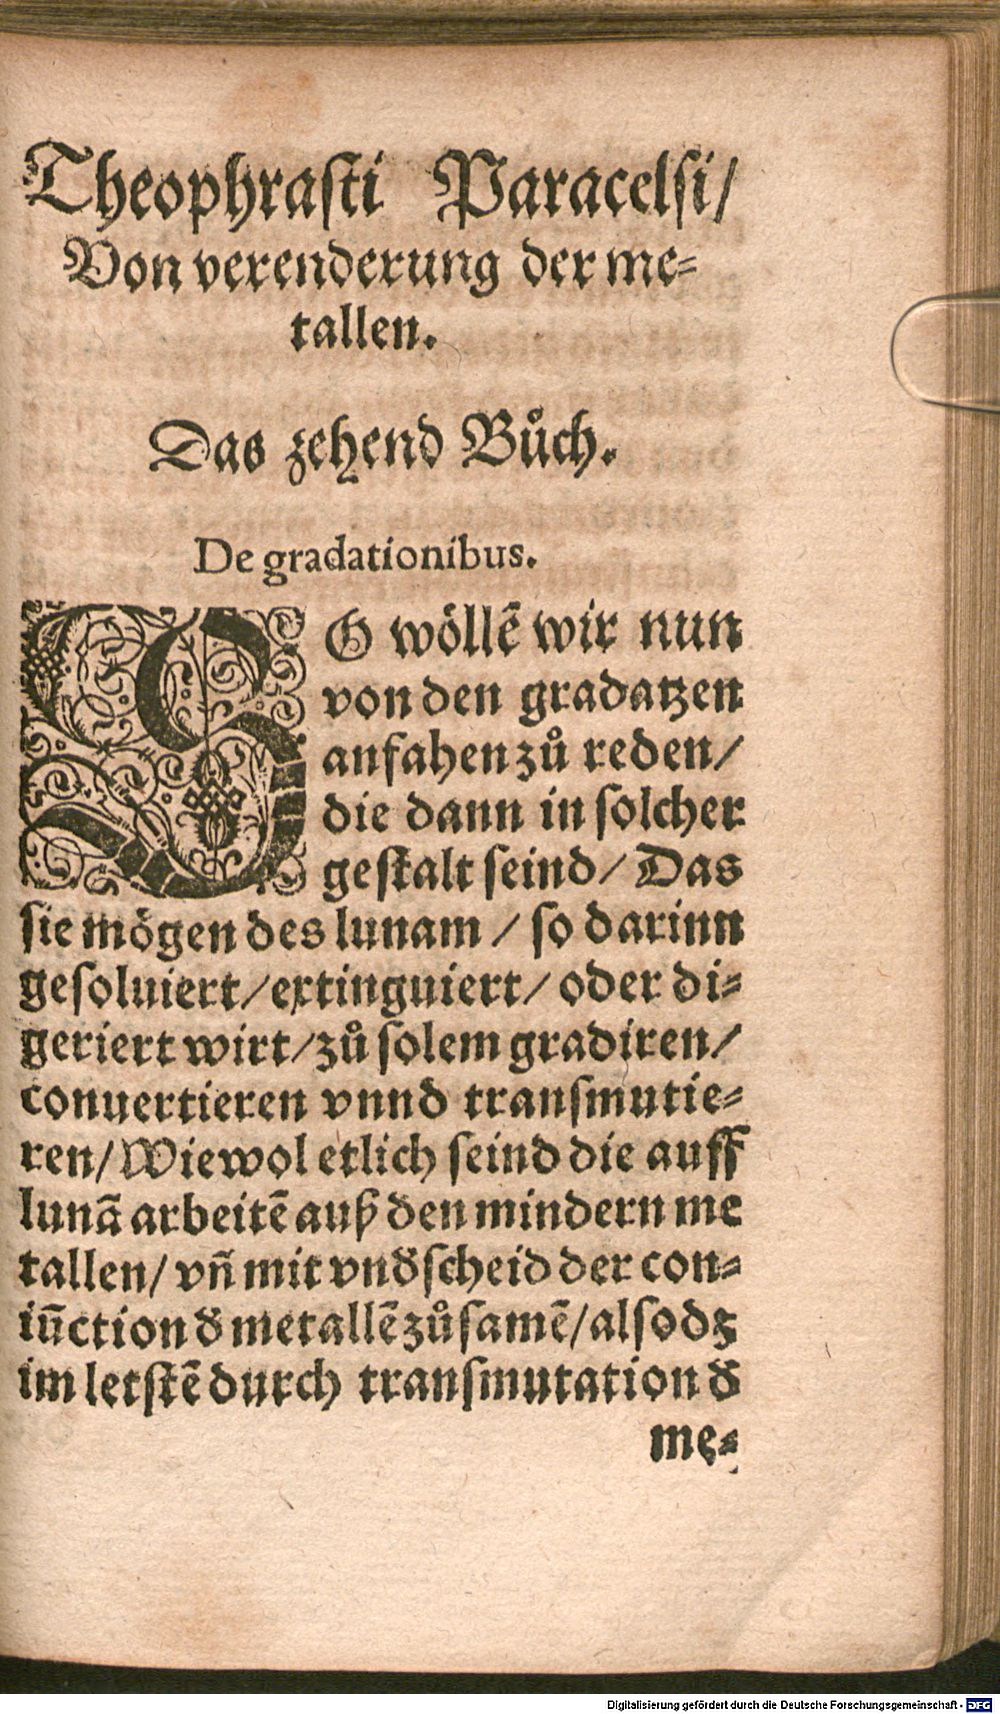 Theophrasti Paracelsi/
Von verenderung der me⸗
tallen.
Das zehend Bůch.
De gradationibus.
SO wöllẽ wir nun
von den gradatzen
anfahen zů reden/
die dann in solcher
gestalt seind/ Das
sie mögen des lunam / so darinn
gesoluiert/extinguiert/ oder di⸗
geriert wirt/zů solem gradiren/
conuertieren vnnd transmutie⸗
ren/Wiewol etlich seind die auff
lunã arbeitẽ auß den mindern me
tallen/ vñ mit vndscheid der con⸗
iũction d metallẽ zůsamẽ/also dz
im letstẽ durch transmutation d
me⸗
Digitalisierung gefördert durch die Deutsche Forschungsgemeinschaft - DFG